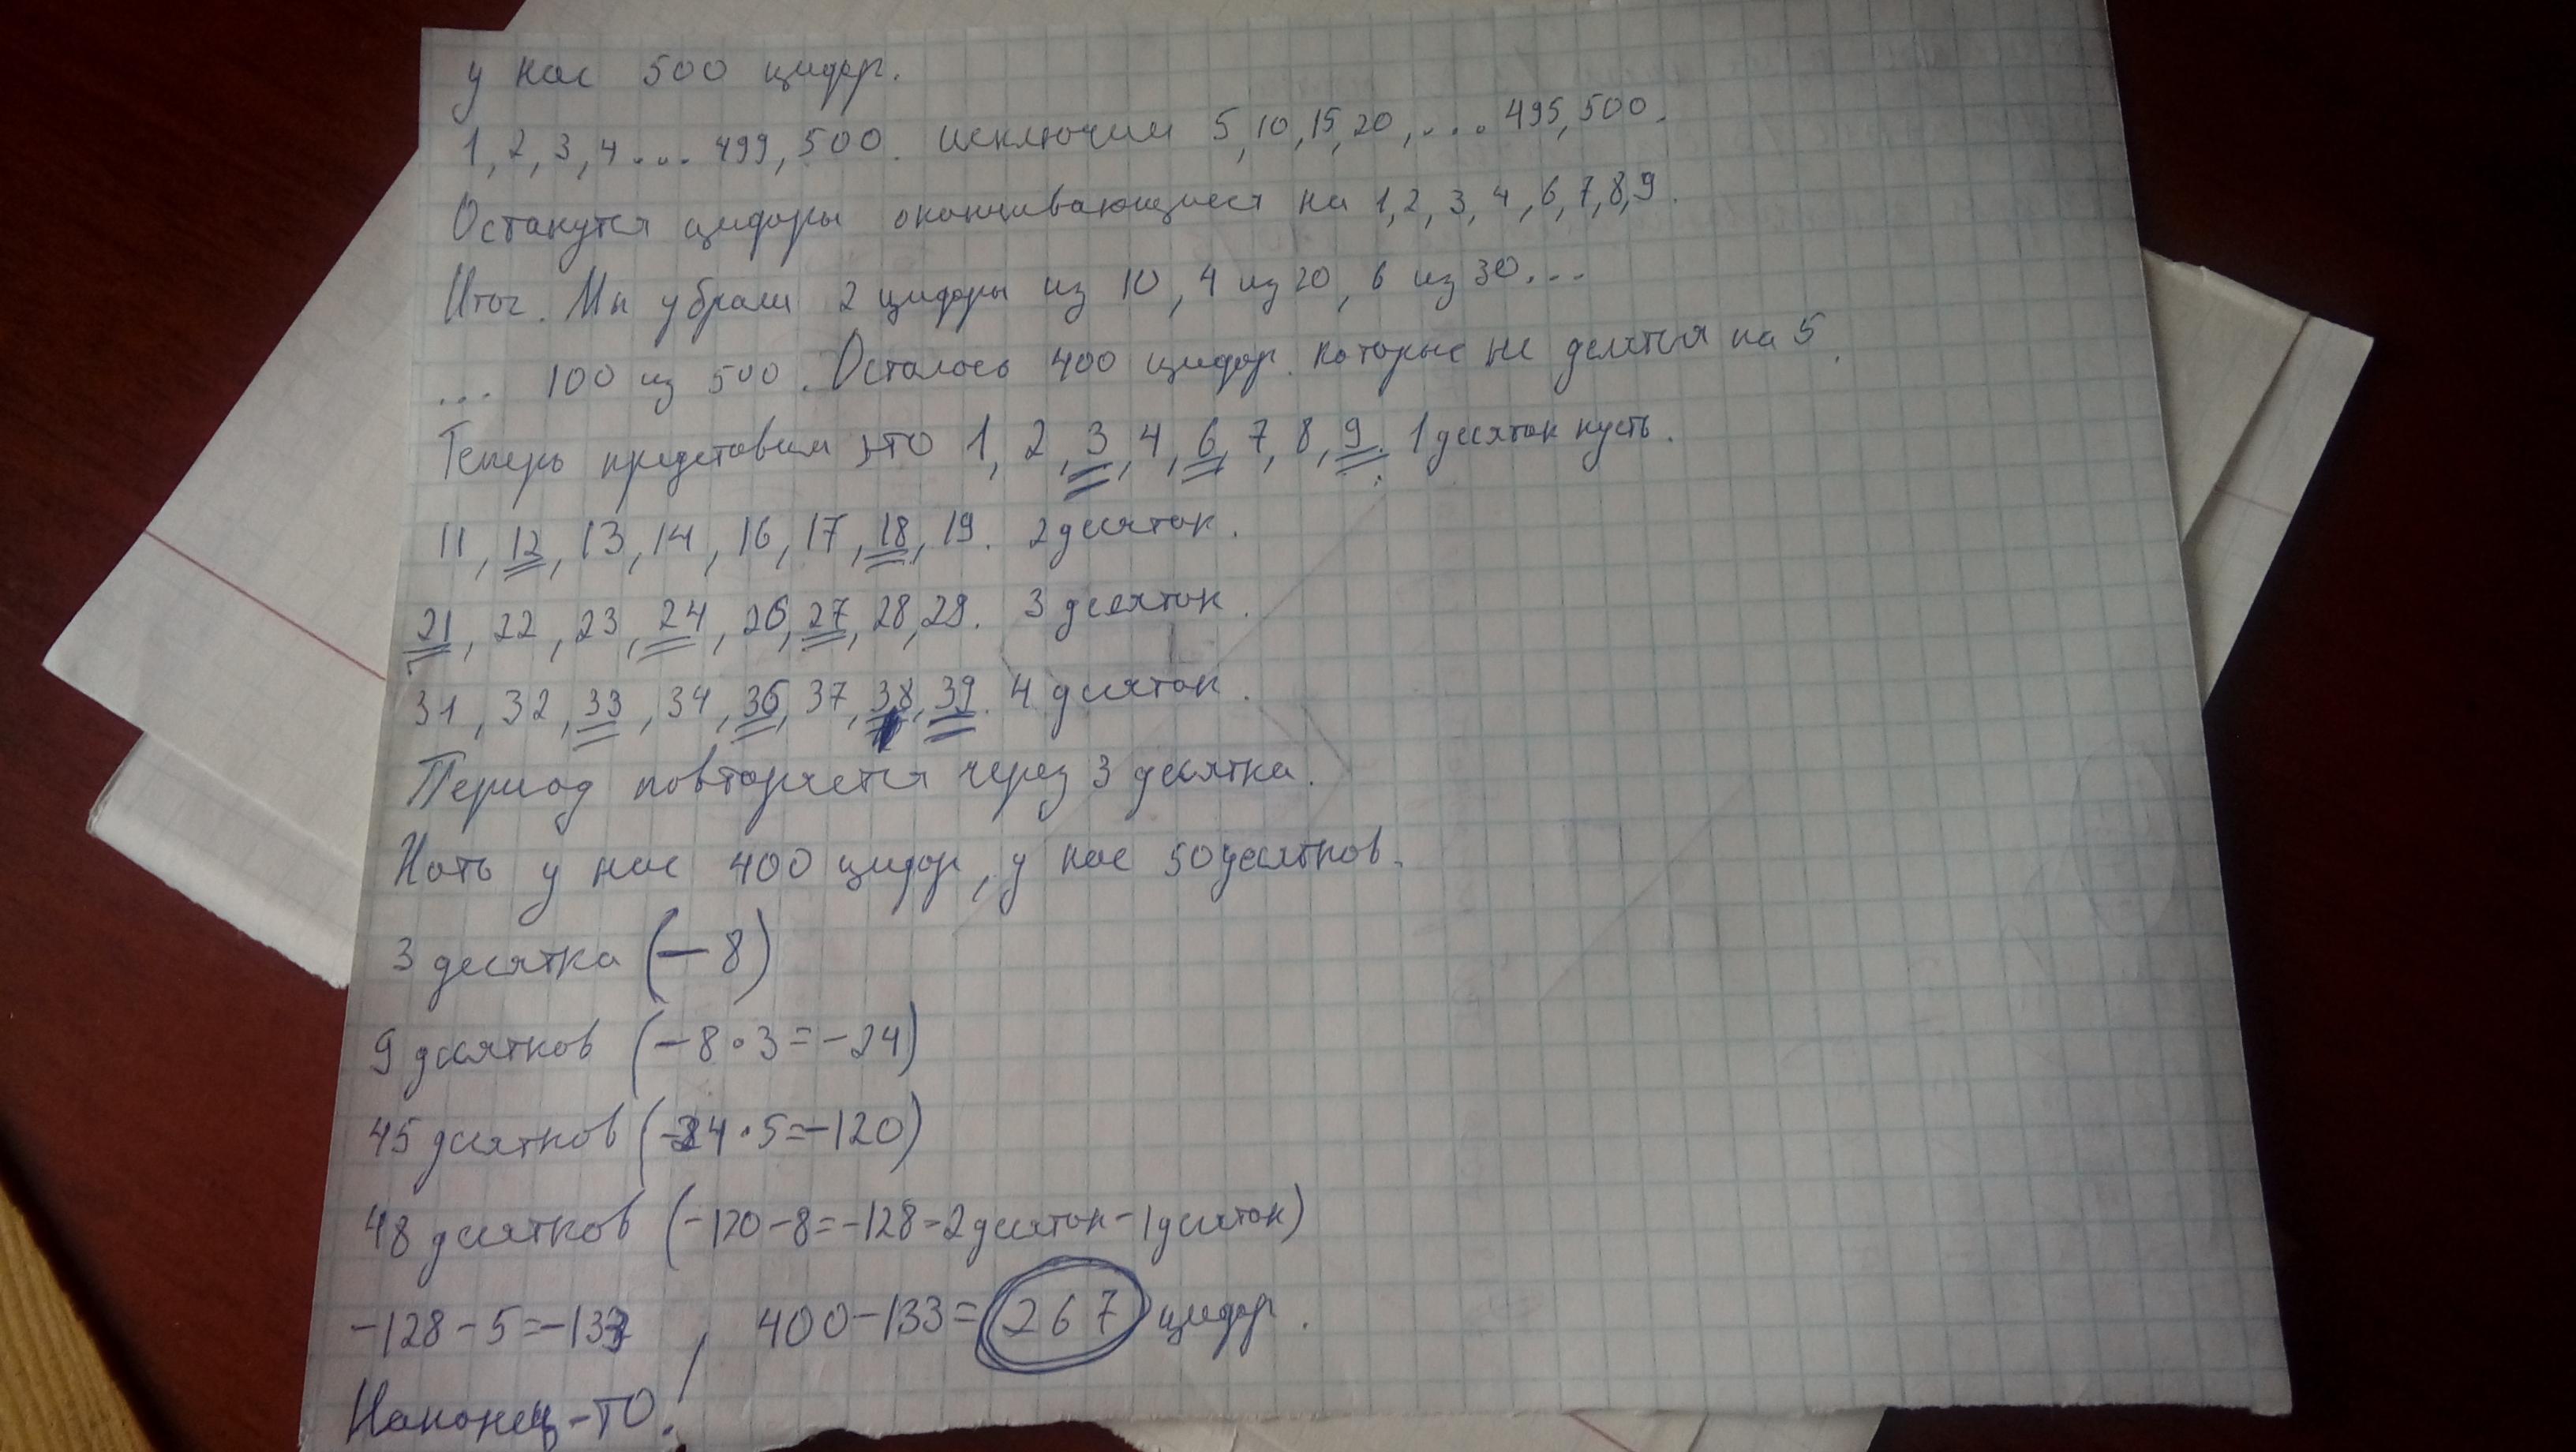 у нас 500 цифр.
1, 2, 3, 4 ... 499, 500. исключим 5, 10, 15, 20, ... 495, 500.
Останутся цифры оканчивающиеся на 1, 2, 3, 4, 6, 7, 8, 9.
Итог. Мы убрали 2 цифры из 10, 4 из 20, 6 из 30...
... 100 из 500. Осталось 400 цифр. которые не делятся на 5.
Теперь представим это 1, 2, 3, 4, 6, 7, 8, 9. 1 десяток пусть.
11, 12, 13, 14, 16, 17, 18, 19. 2 десяток.
21, 22, 23, 24, 26, 27, 28, 29. 3 десяток.
31, 32, 33, 34, 36, 37, 38, 39. 4 десяток.
Период повторяется через 3 десятка.
Хоть у нас 400 цифр, у нас 50 десятков.
3 десятка (-8)
9 десятков (-8·3=-24)
45 десятков (-24·5=-120)
48 десятков (-120-8=-128-2десяток-1десяток)
-128-5=-133, 400-133=267 цифр.
Наконец-то!